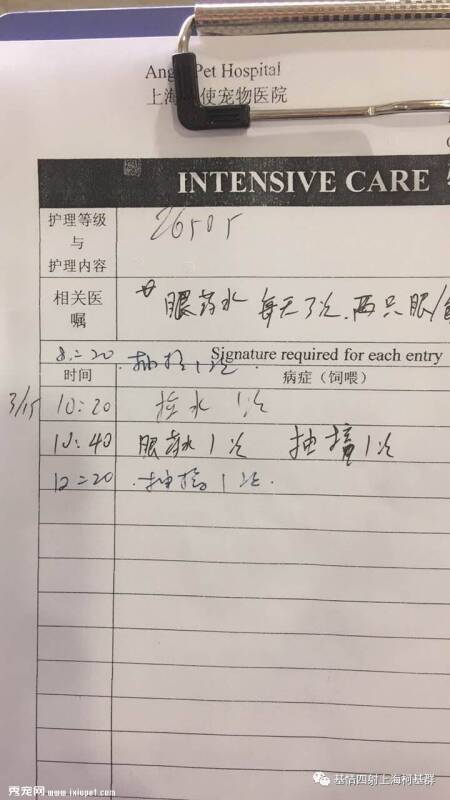 Pet Hospital
上海 使宠物医院
INTENSIVE CARE
护理等级
与
护理内容
26505
相关医
嘱
眼药水 每天3次.两只眼/
8:20 抽搐1次.
Signature required for each entry
时间 病症（饲喂）
3/15 10:20 拉水 1次
10:40 眼药水1次 抽搐1次
12:20 抽搐1次.
秀宠网 www.ixiupet.com
基情四射上海柯基群